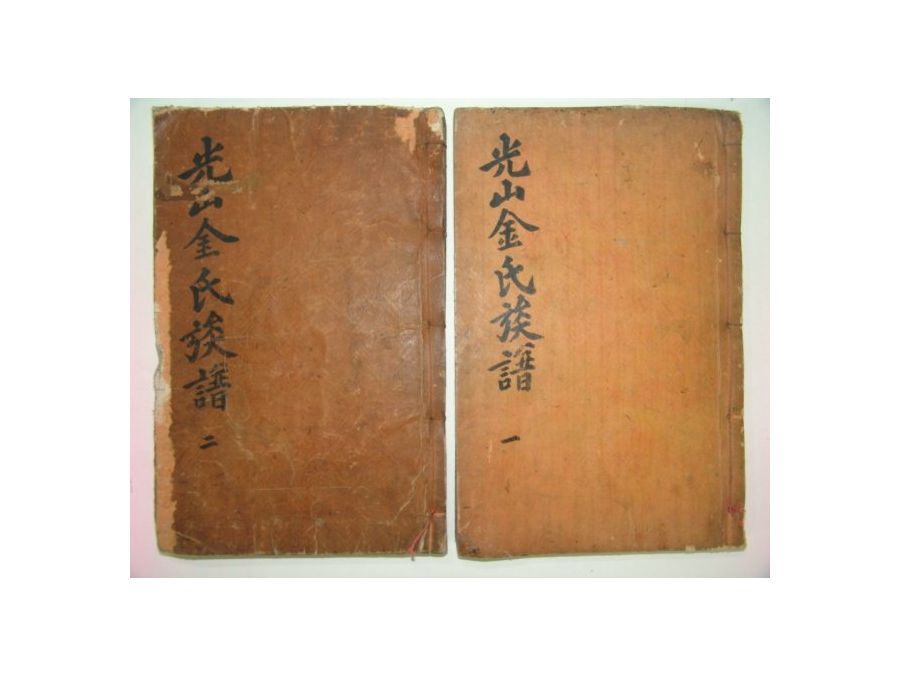 光山金氏族譜 一
光山金氏族譜 二